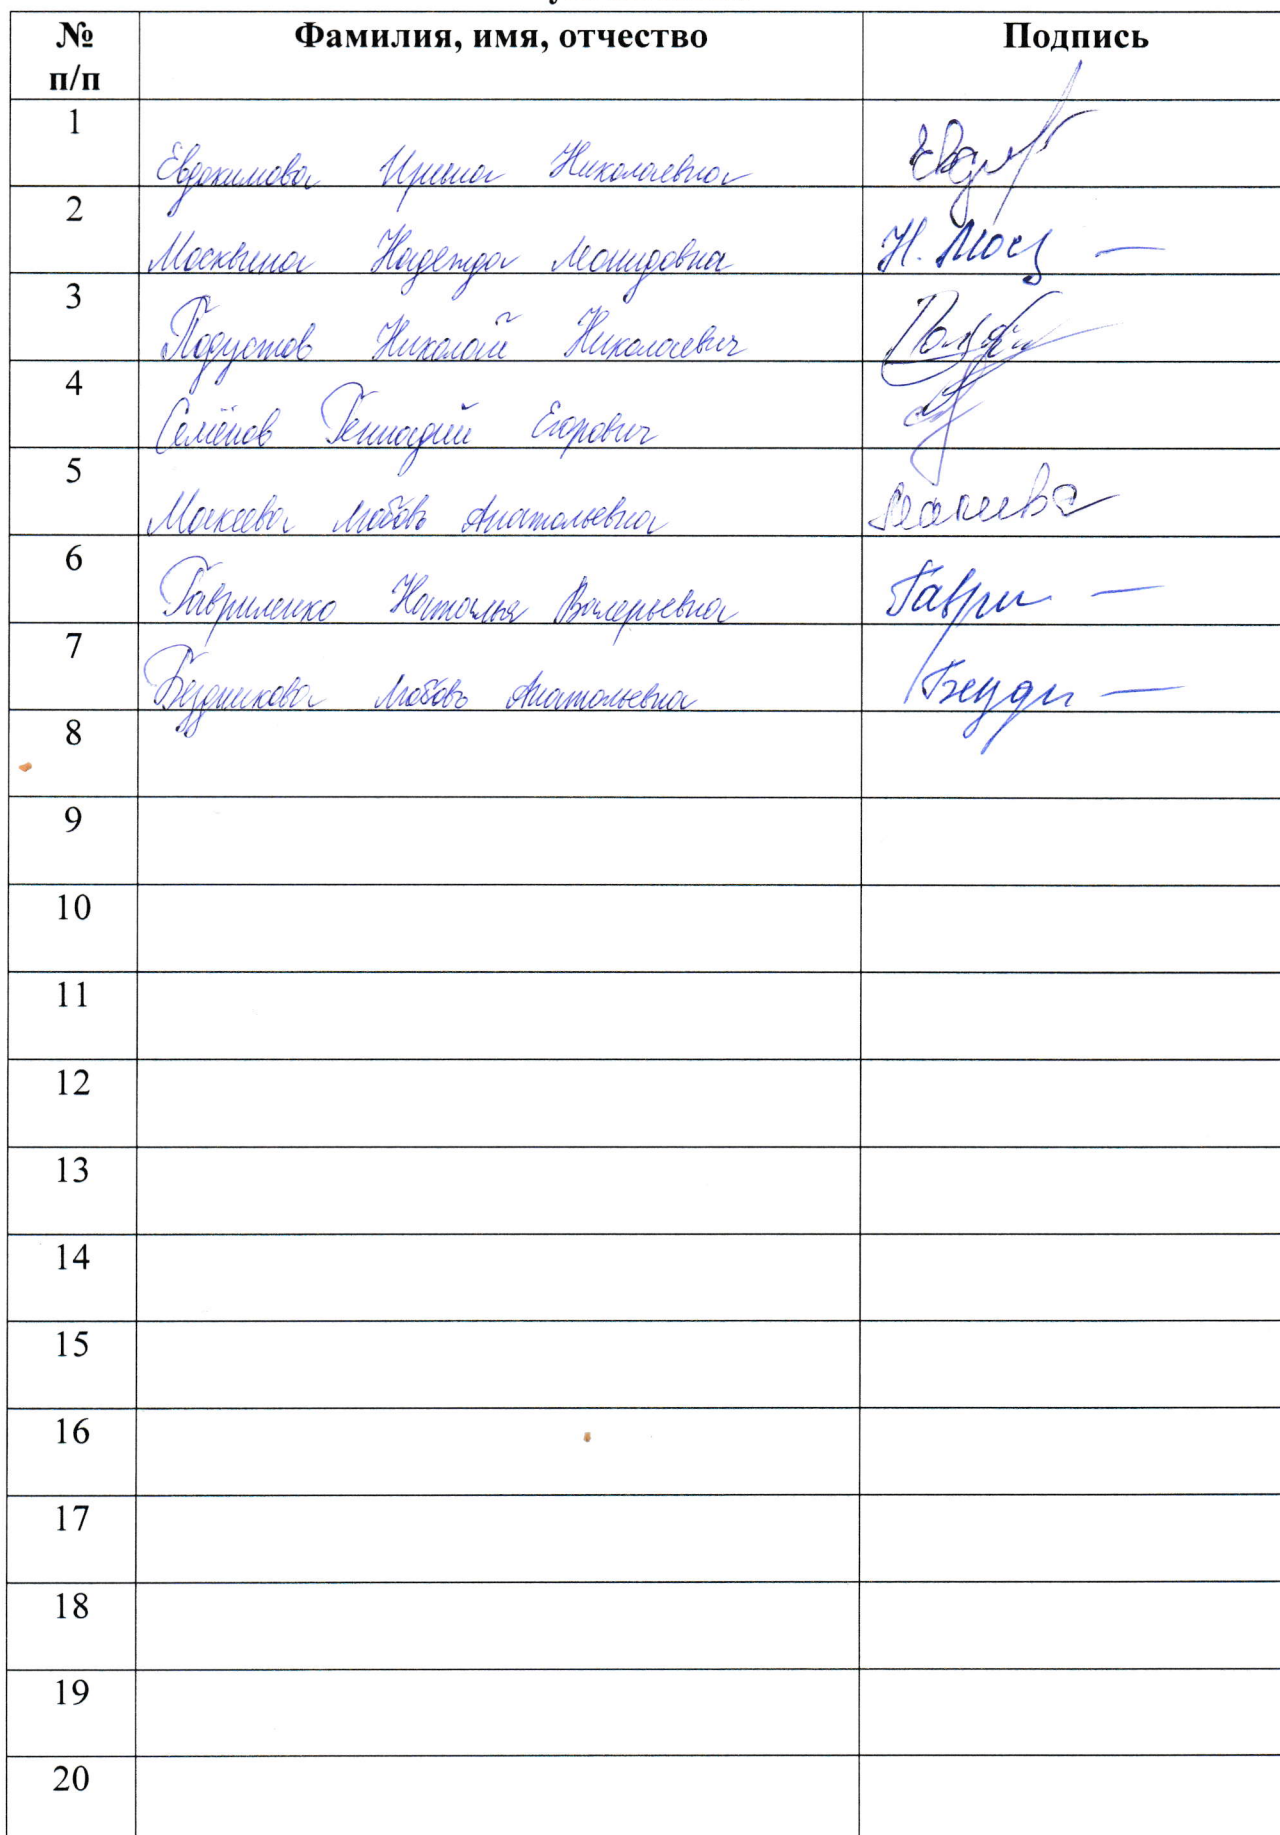 № п/п Фамилия, имя, отчество Подпись
1 Евдокимова Ирина Николаевна Евд
2 Москвина Надежда Леонидовна Н. Моск
3 Подустов Николай Николаевич
4 Семёнов Геннадий Егорович
5 Макеева Любовь Анатольевна Макеева
6 Гавриленко Наталья Валерьевна Гаври
7 Бездникова Любовь Анатольевна
8
9
10
11
12
13
14
15
16
17
18
19
20